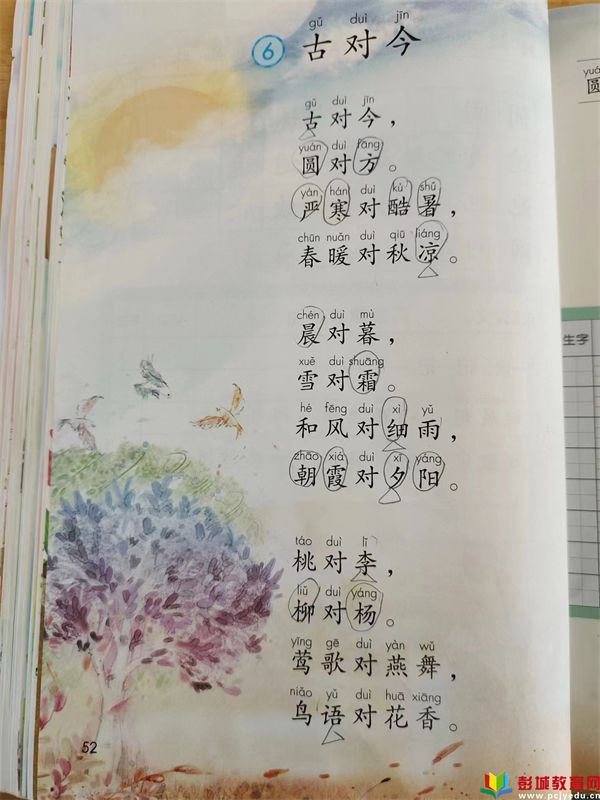 gǔ duì jīn
6 古对今
gǔ duì jīn
古对今，
yuán duì fāng
圆对方。
yán hán duì kù shǔ
严寒对酷暑，
chūn nuǎn duì qiū liáng
春暖对秋凉。
chén duì mù
晨对暮，
xuě duì shuāng
雪对霜。
hé fēng duì xì yǔ
和风对细雨，
zhāo xiá duì xī yáng
朝霞对夕阳。
táo duì lǐ
桃对李，
liǔ duì yáng
柳对杨。
yīng gē duì yàn wǔ
莺歌对燕舞，
niǎo yǔ duì huā xiāng
鸟语对花香。
52
圆
生字
彭城教育网
www.pcjyedu.cn